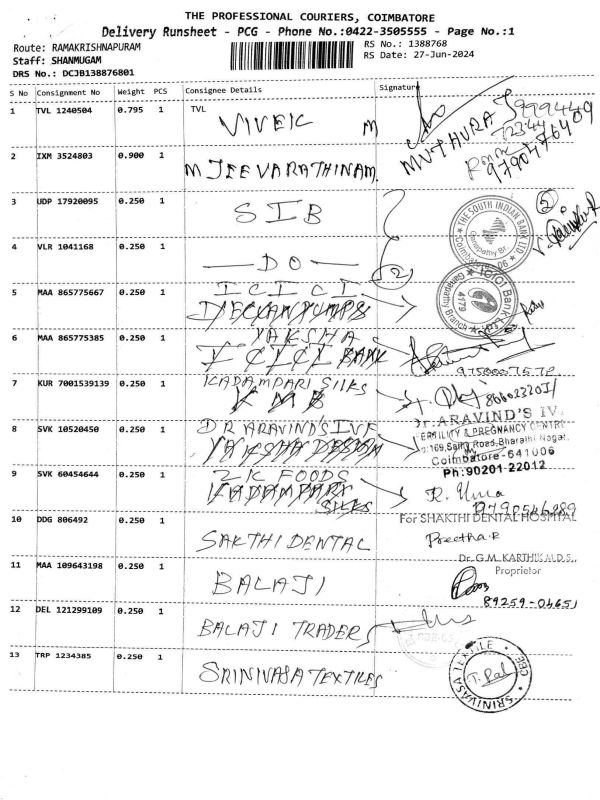 THE PROFESSIONAL COURIERS, COIMBATORE
Delivery Runsheet - PCG - Phone No.:0422-3505555 - Page No.:1
Route: RAMAKRISHNAPURAM
RS No.: 1388768
Staff: SHANMUGAM
RS Date: 27-Jun-2024
DRS No.: DCJB138876801
S No Consignment No Weight PCS Consignee Details Signature
1 TVL 1240504 0.795 1 TVL
VIVEK M
MUTHURAJ
9790476409
2 IXM 3524803 0.900 1 M JEEVARATHINAM
3 UDP 17920095 0.250 1 SIB
THE SOUTH INDIAN BANK LTD
Ganapathy Br.
2
4 VLR 1041168 0.250 1 DO
2
5 MAA 865775667 0.250 1 ICICI
DECKAN PUMPS
ICICI Bank
Ganapathy Branch
4179
6 MAA 865775385 0.250 1 YAKSHA
ICICI BANK
9750007572
7 KUR 7001539139 0.250 1 KADAMPARI SILKS
KMB
8 SVK 10520450 0.250 1 DR ARAVIND'S IVF
YAKSHA DESIGN
Dr. ARAVIND'S IV
FERTILITY & PREGNANCY CENTRE
169, Sathy Road, Bharathi Nagar,
Coimbatore-641006
Ph:90201-22012
9 SVK 60454644 0.250 1 2K FOODS
KADAMPARI
SILKS
R. Uma
10 DDG 806492 0.250 1 SAKTHI DENTAL
For SHAKTHI DENTAL HOSPITAL
Preetha.R
Dr. G.M. KARTHIK M.D.S.,
Proprietor
11 MAA 109643198 0.250 1 BALAJI
89259-04651
12 DEL 121299109 0.250 1 BALAJI TRADERS
13 TRP 1234385 0.250 1 SRINIVASA TEXTILES
SRINIVASA TEXTILE
CBE
T. Pal